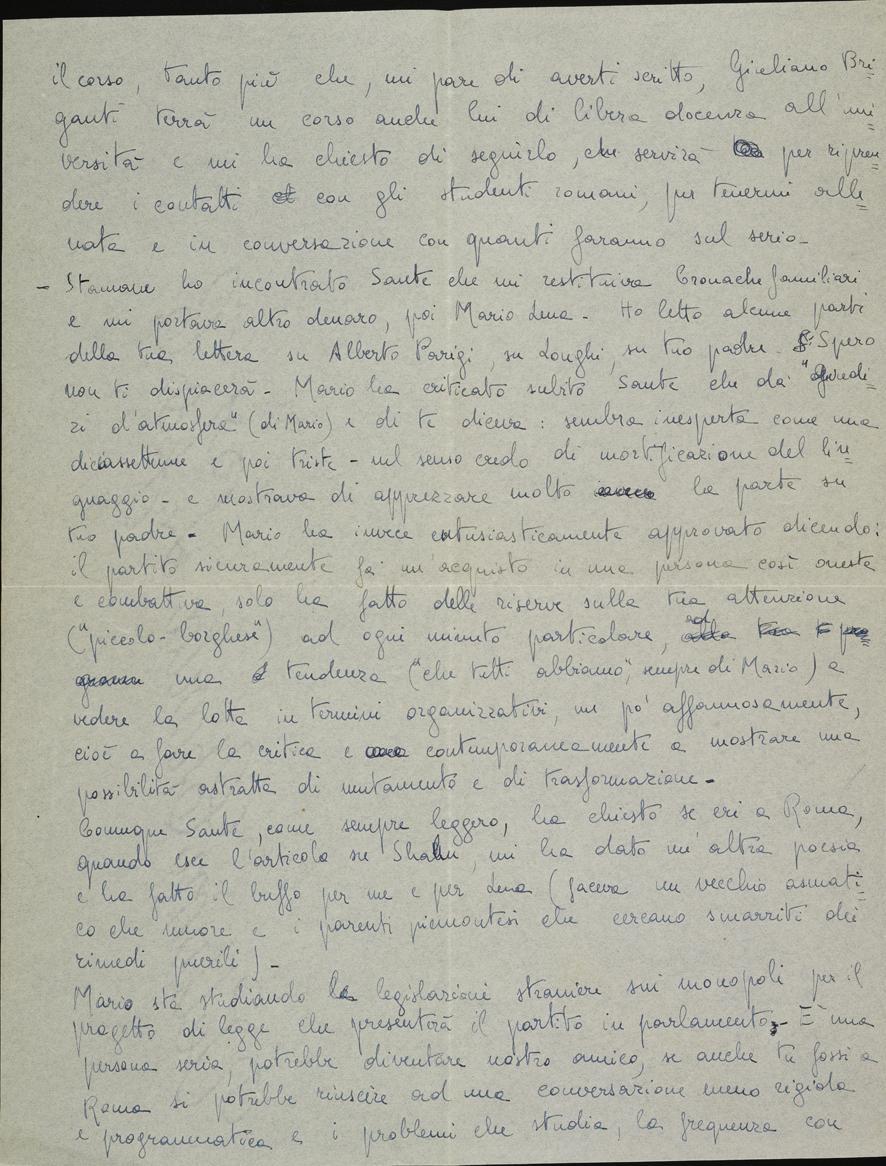 il corso, tanto più che, mi pare di averti scritto, Giuliano Bri=
ganti terrà un corso anche lui di libera docenza all'uni=
versità e mi ha chiesto di seguirlo, che servirà per ripren=
dere i contatti con gli studenti romani, per tenermi alle=
nata e in conversazione con quanti faranno sul serio-
- Stamane ho incontrato Sante che mi restituiva Cronache familiari
e mi portava altro denaro, poi Mario Lena - Ho letto alcune parti
della tua lettera su Alberto Parigi, su Longhi, su tuo padre. Spero
non ti dispiacerà - Mario ha criticato subito Sante che dà "giudi=
zi d'atmosfera" (di Mario) e di te diceva: sembra inesperta come una
diciassettenne e poi triste - nel senso credo di mortificazione del lin=
guaggio - e mostrava di apprezzare molto la parte su
tuo padre - Mario ha invece entusiasticamente approvato dicendo:
il partito sicuramente fa un'acquisto in una persona così onesta
e combattiva, solo ha fatto delle riserve sulla tua attenzione
("piccolo-borghese") ad ogni minuto particolare, ad
una tendenza ("che tutti abbiamo", sempre di Mario) a
vedere la lotta in termini organizzativi, un po' affannosamente,
cioè a fare la critica e contemporaneamente a mostrare una
possibilità astratta di mutamento e di trasformazione -
Comunque Sante, come sempre leggero, ha chiesto se eri a Roma,
quando esce l'articolo su Shahn, mi ha dato un'altra poesia
e ha fatto il buffo per me e per Lena (faceva un vecchio asmati=
co che muore e i parenti piemontesi che cercano smarriti dei
rimedi puerili) -
Mario sta studiando le legislazioni straniere sui monopoli per il
progetto di legge che presenterà il partito in parlamento - È una
persona seria, potrebbe diventare nostro amico, se anche tu fossi a
Roma si potrebbe riuscire ad una conversazione meno rigida
e programmatica e i problemi che studia, la frequenza con